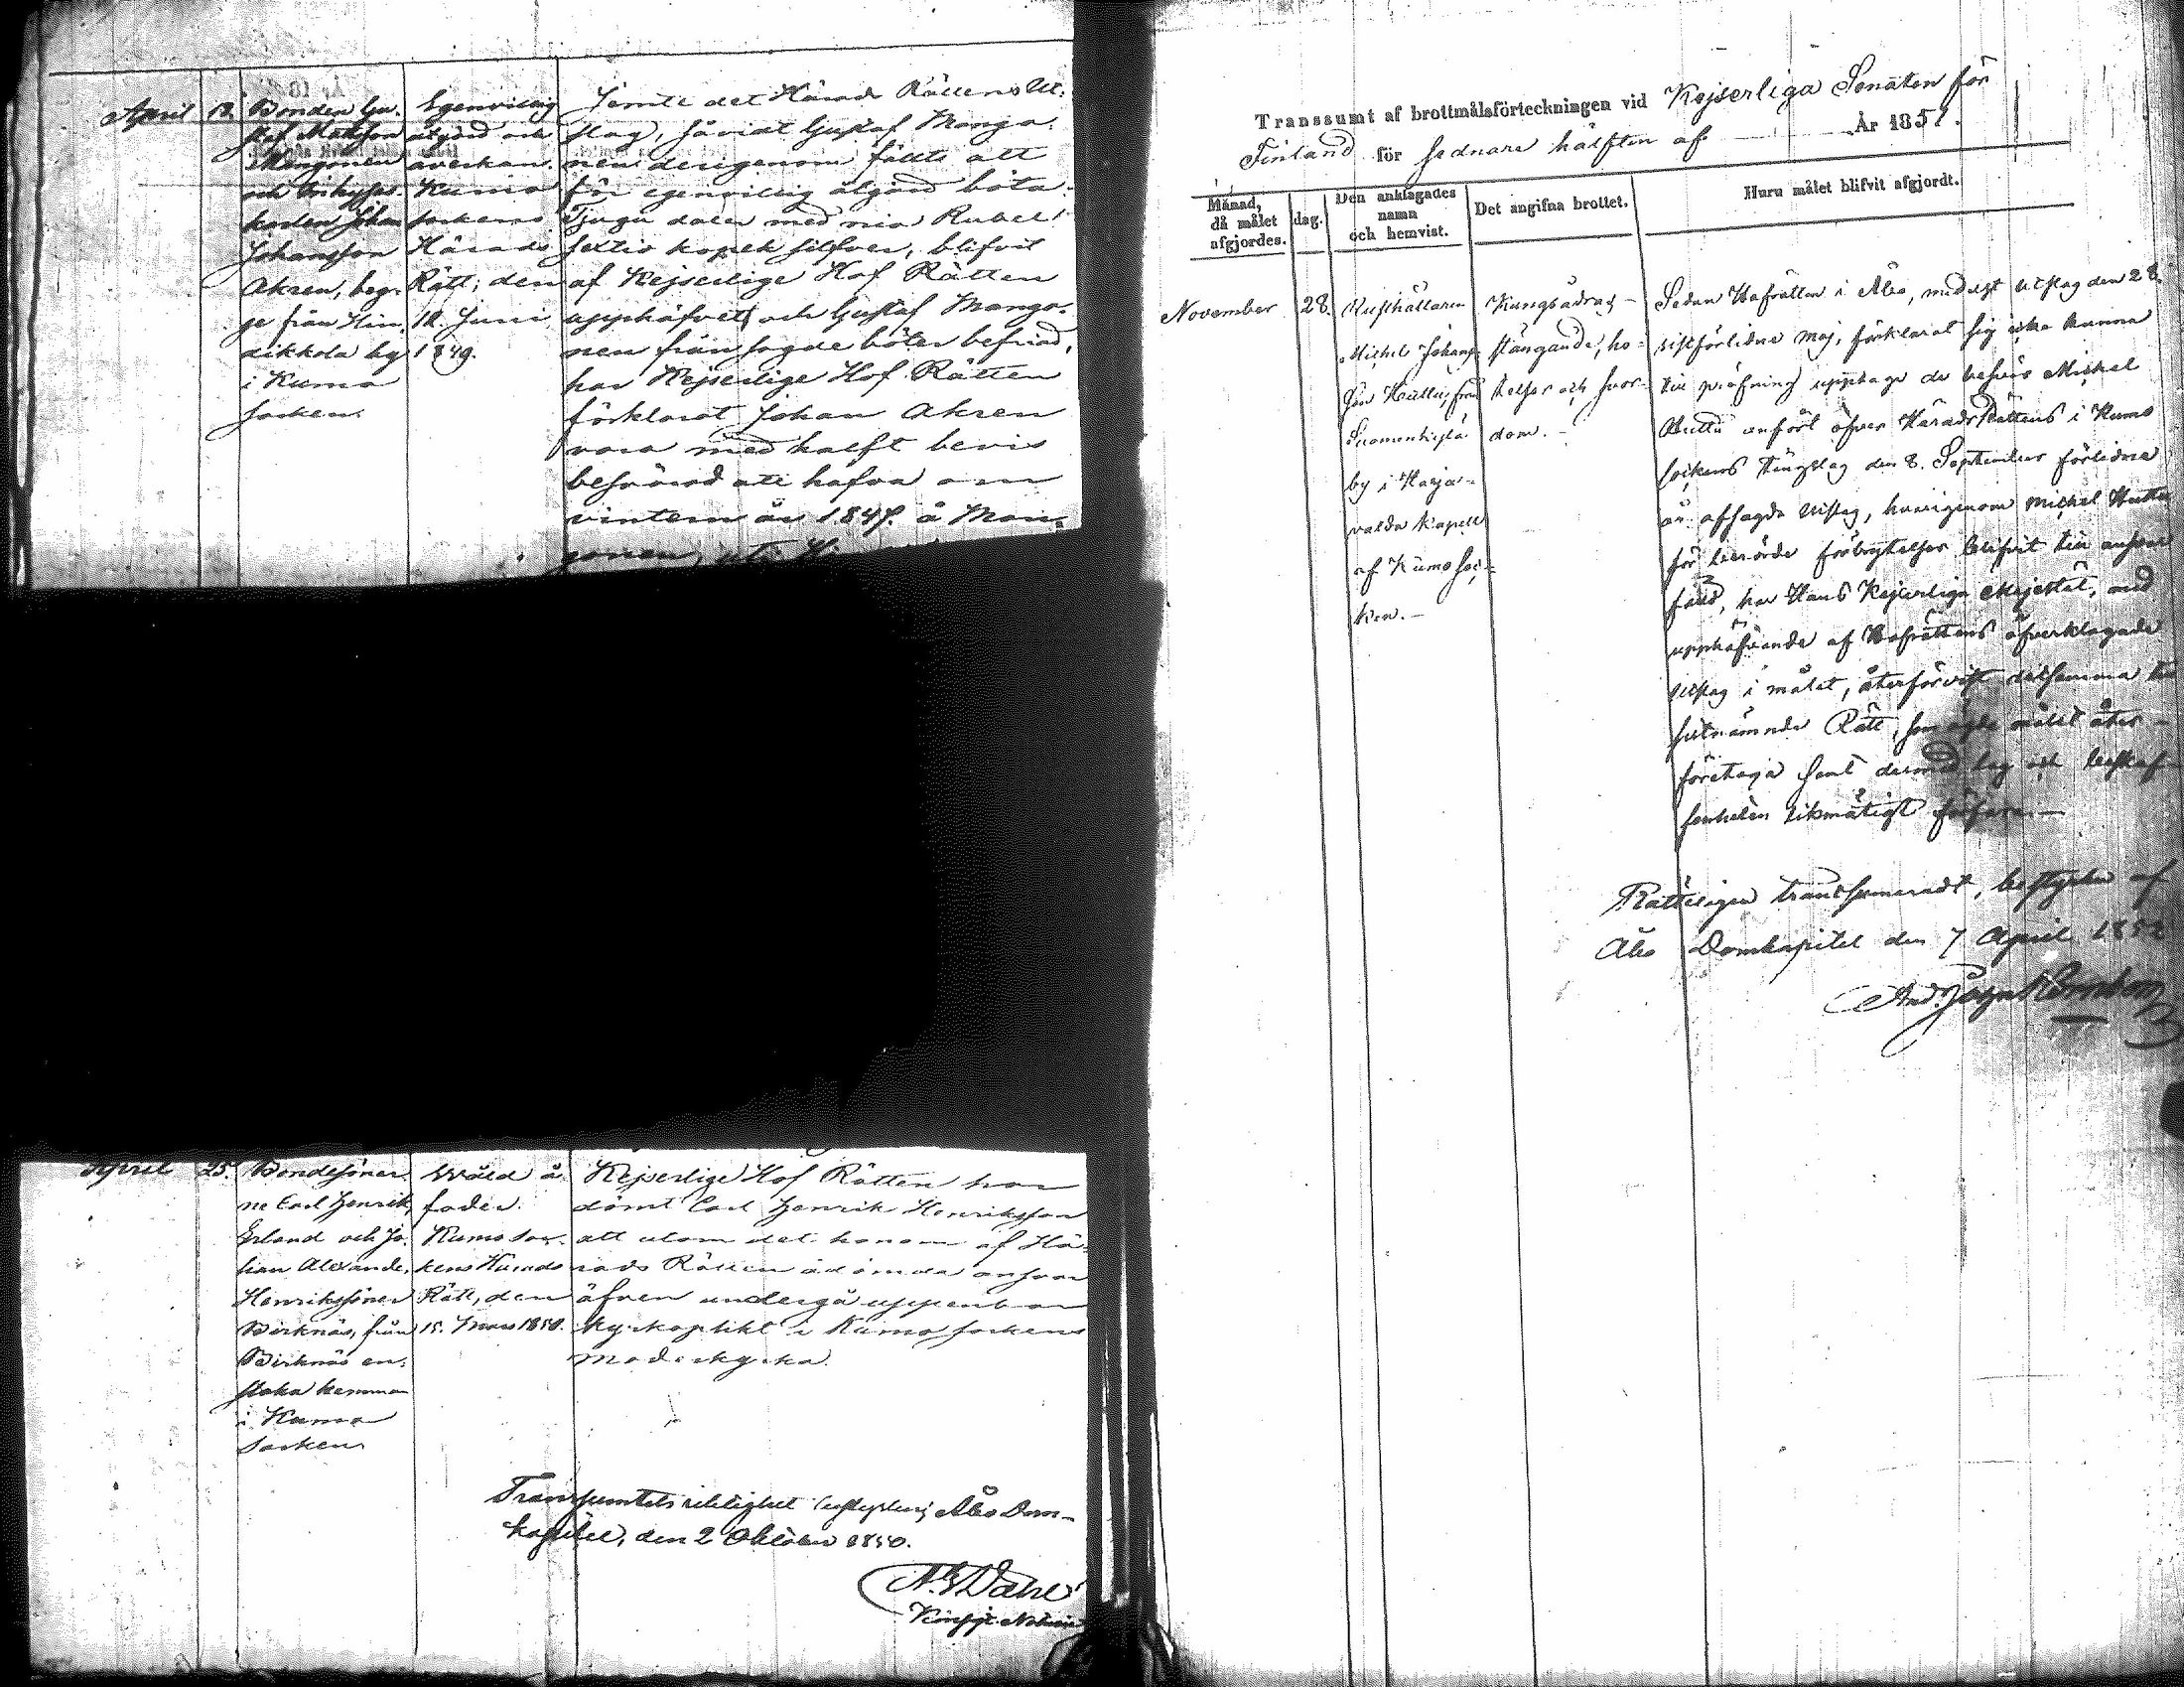 April 18. Bonden Gu-
staf Mattsson
Mangonen
och
karlen Johan
Johansson
Akren, beg-
ge från Hin-
dikkola by
i Kumo
socken.
Egenvillig
åtgärd och
averkan.
Kumo
sockens
Härads
Rätt, den
12. Juni
1849.
Jemte det Härads Rättens Ut-
slag, såvidt Gustaf Mango-
nen derigenom fällts att
för egenvillig åtgärd böta
Tjugu daler med nio Rubel
sextio kopek silfver, blifvit
af Kejserlige Hof Rätten
upphäfvet, och Gustaf Mango-
nen från sagde böter befriad,
har Kejserlige Hof Rätten
förklarat Johan Akren
vara med halft bevis
besvärad att hafva om
vintern år 1847 å Man-
gonen, uti
April 25. Bondesöner-
ne Carl Henrik,
Erland och Jo-
han Alexander
Henrikssöner
Birknäs, från
Birknäs en-
staka hemman
i Kumo
Socken
Wåld å
fader.
Kumo soc-
kens Härads
Rätt, den
15. Mars 1850.
Kejserlige Hof Rätten har
dömt Carl Henrik Henriksson
att utom det honom af Hä-
rads Rätten ådömda ansvar
äfven undergå uppenbar
kyrkoplikt i Kumo sockens
moderkyrka.
Transsumtets riktighet bestyrkes; Åbo Dom-
kapitel, den 2 Oktober 1850.
Dahl
Notarie
Transsumt af brottmålsförteckningen vid Kejserliga Senaten för
Finland för sednare hälften af År 1851.
Månad,
då målet
afgjordes.
dag.
Den anklagades
namn
och hemvist.
Det angifna brottet.
Huru målet blifvit afgjordt.
November 28.
Rusthållaren
Michel Johans-
son Huttu, från
Suomenkylä
by i Harja-
valda Kapell
af Kumo soc-
ken. —
Kungsådras —
stängande, ho-
telser och svor-
dom. —
Sedan Hofrätten i Åbo, medelst utslag den 28.
sistförlidne maj, förklarat sig icke kunna
till pröfning upptaga de besvär Michel
Huttu anfört öfver HäradsRättens i Kumo
sockens tingslag den 8. September förlidne
år afsagda utslag, hvarigenom Michel Huttu
för berörde förbrytelser blifvit till ansvar
fälld, har Hans Kejserliga Majestät, med
upphäfvande af Hofrättens öfverklagade
utslag i målet, återförvist detsamma till
sistnämnde Rätt, som ägde målet åter-
företaga samt dermed lag och beskaf-
fenheten likmätigt förfara. —
Rätteligen transsumeradt, bestyrkes af
Åbo Domkapitel den 7 April 1852